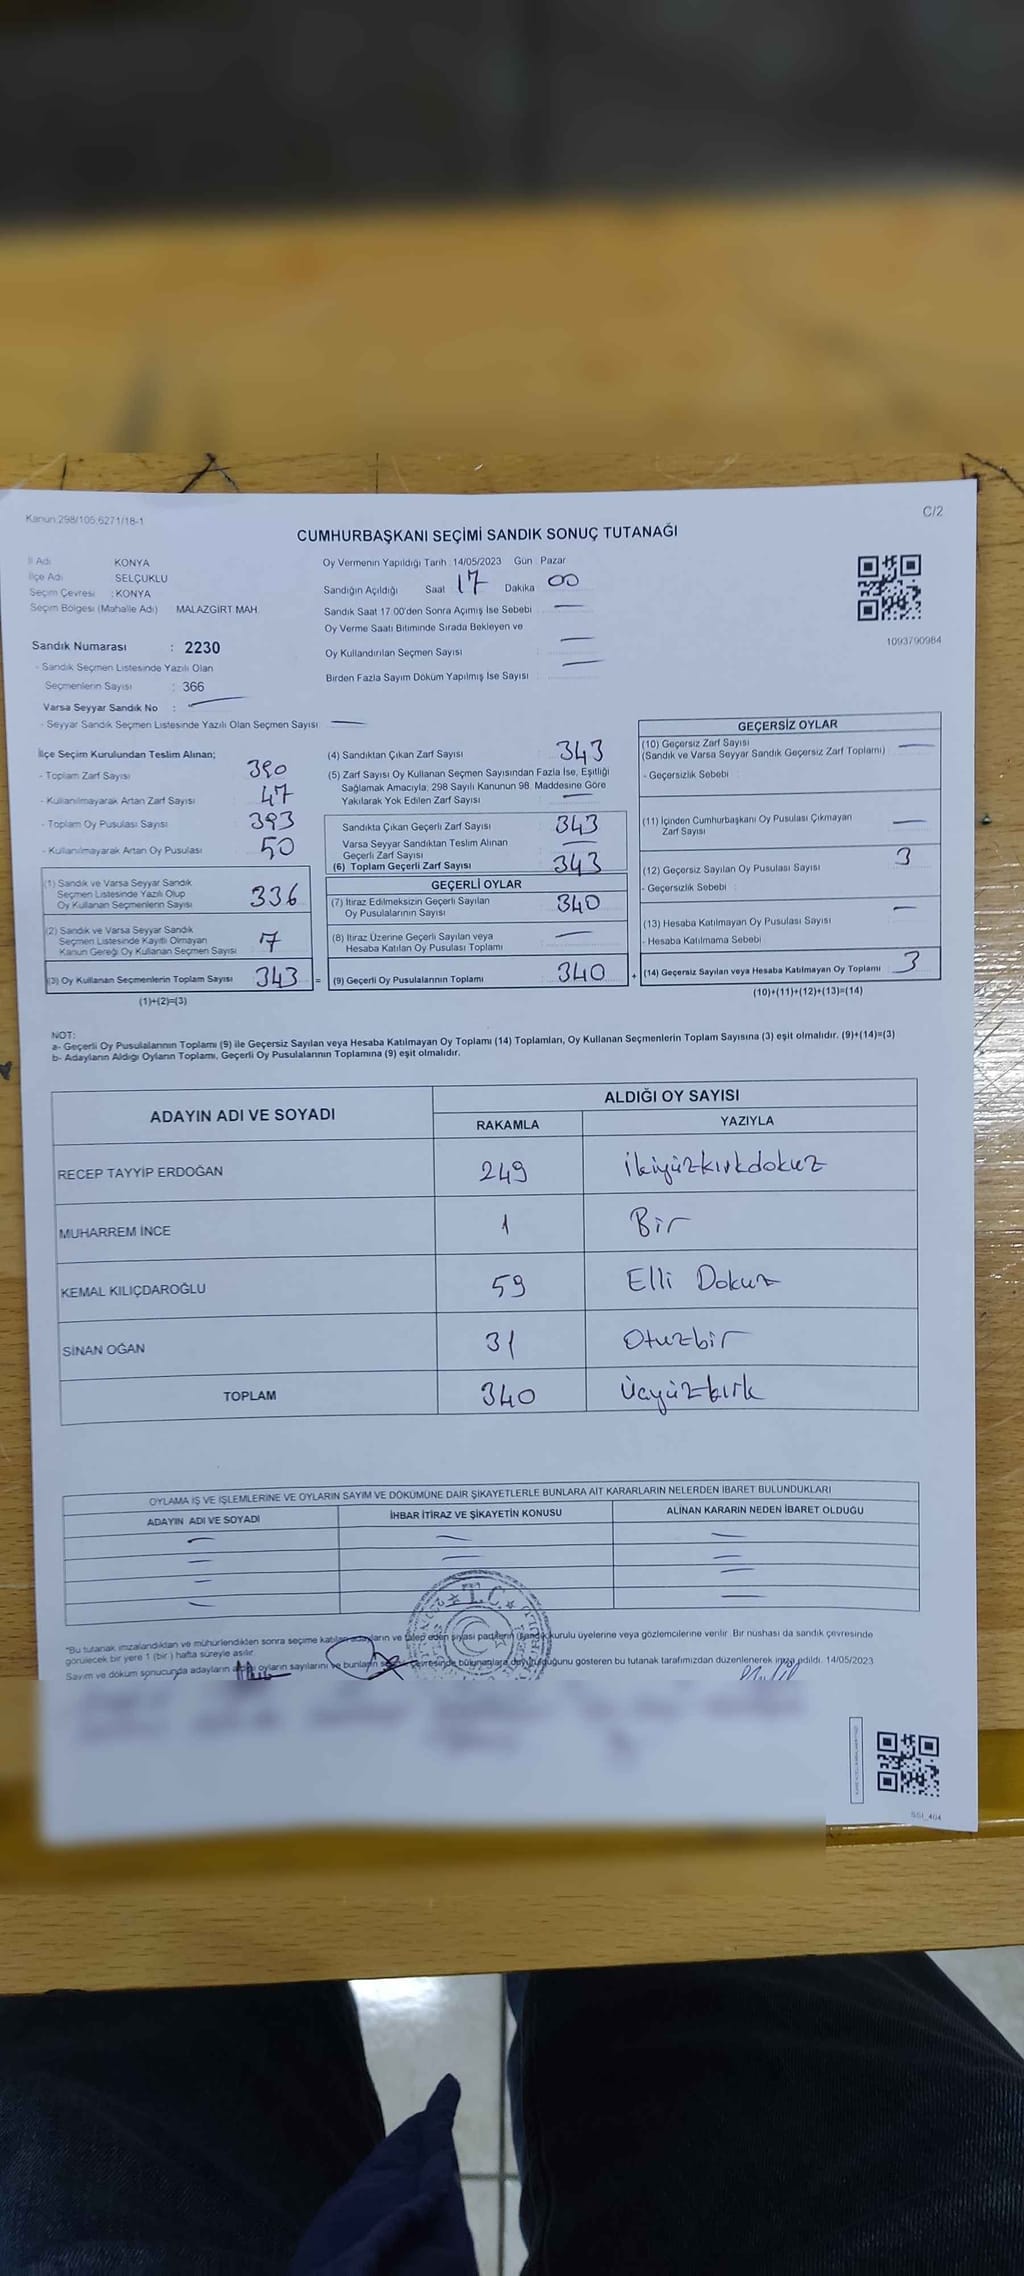 Kanun:298/105;6271/18-1
C/2
CUMHURBAŞKANI SEÇİMİ SANDIK SONUÇ TUTANAĞI
İl Adı KONYA
İlçe Adı SELÇUKLU
Seçim Çevresi : KONYA
Seçim Bölgesi (Mahalle Adı) MALAZGİRT MAH.
Oy Vermenin Yapıldığı Tarih : 14/05/2023 Gün : Pazar
Sandığın Açıldığı Saat 17 Dakika 00
Sandık Saat 17.00'den Sonra Açılmış İse Sebebi : —
Oy Verme Saati Bitiminde Sırada Bekleyen ve
Oy Kullandırılan Seçmen Sayısı : —
Birden Fazla Sayım Döküm Yapılmış İse Sayısı : —
1093790984
Sandık Numarası : 2230
- Sandık Seçmen Listesinde Yazılı Olan
Seçmenlerin Sayısı : 366
Varsa Seyyar Sandık No : —
- Seyyar Sandık Seçmen Listesinde Yazılı Olan Seçmen Sayısı : —
İlçe Seçim Kurulundan Teslim Alınan;
- Toplam Zarf Sayısı 390
- Kullanılmayarak Artan Zarf Sayısı 47
- Toplam Oy Pusulası Sayısı 393
- Kullanılmayarak Artan Oy Pusulası 50
(1) Sandık ve Varsa Seyyar Sandık
Seçmen Listesinde Yazılı Olup
Oy Kullanan Seçmenlerin Sayısı 336
(2) Sandık ve Varsa Seyyar Sandık
Seçmen Listesinde Kayıtlı Olmayan
Kanun Gereği Oy Kullanan Seçmen Sayısı 7
(3) Oy Kullanan Seçmenlerin Toplam Sayısı 343 =
(1)+(2)=(3)
(4) Sandıktan Çıkan Zarf Sayısı 343
(5) Zarf Sayısı Oy Kullanan Seçmen Sayısından Fazla İse, Eşitliği
Sağlamak Amacıyla, 298 Sayılı Kanunun 98. Maddesine Göre
Yakılarak Yok Edilen Zarf Sayısı —
Sandıkta Çıkan Geçerli Zarf Sayısı 343
Varsa Seyyar Sandıktan Teslim Alınan
Geçerli Zarf Sayısı —
(6) Toplam Geçerli Zarf Sayısı 343
GEÇERLİ OYLAR
(7) İtiraz Edilmeksizin Geçerli Sayılan
Oy Pusulalarının Sayısı 340
(8) İtiraz Üzerine Geçerli Sayılan veya
Hesaba Katılan Oy Pusulası Toplamı —
(9) Geçerli Oy Pusulalarının Toplamı 340 +
GEÇERSİZ OYLAR
(10) Geçersiz Zarf Sayısı
(Sandık ve Varsa Seyyar Sandık Geçersiz Zarf Toplamı) —
- Geçersizlik Sebebi :
(11) İçinden Cumhurbaşkanı Oy Pusulası Çıkmayan
Zarf Sayısı —
(12) Geçersiz Sayılan Oy Pusulası Sayısı 3
- Geçersizlik Sebebi :
(13) Hesaba Katılmayan Oy Pusulası Sayısı —
- Hesaba Katılmama Sebebi
(14) Geçersiz Sayılan veya Hesaba Katılmayan Oy Toplamı 3
(10)+(11)+(12)+(13)=(14)
NOT:
a- Geçerli Oy Pusulalarının Toplamı (9) ile Geçersiz Sayılan veya Hesaba Katılmayan Oy Toplamı (14) Toplamları, Oy Kullanan Seçmenlerin Toplam Sayısına (3) eşit olmalıdır. (9)+(14)=(3)
b- Adayların Aldığı Oyların Toplamı, Geçerli Oy Pusulalarının Toplamına (9) eşit olmalıdır.
ADAYIN ADI VE SOYADI
ALDIĞI OY SAYISI
RAKAMLA YAZIYLA
RECEP TAYYİP ERDOĞAN 249 ikiyüzkırkdokuz
MUHARREM İNCE 1 Bir
KEMAL KILIÇDAROĞLU 59 Elli Dokuz
SİNAN OĞAN 31 Otuzbir
TOPLAM 340 Üçyüzkırk
OYLAMA İŞ VE İŞLEMLERİNE VE OYLARIN SAYIM VE DÖKÜMÜNE DAİR ŞİKAYETLERLE BUNLARA AİT KARARLARIN NELERDEN İBARET BULUNDUKLARI
ADAYIN ADI VE SOYADI İHBAR İTİRAZ VE ŞİKAYETİN KONUSU ALINAN KARARIN NEDEN İBARET OLDUĞU
T.C.
*Bu tutanak imzalandıktan ve mühürlendikten sonra seçime katılan adayların ve talep eden siyasi partilerin sandık kurulu üyelerine veya gözlemcilerine verilir. Bir nüshası da sandık çevresinde
görülecek bir yere 1 (bir) hafta süreyle asılır.
Sayım ve döküm sonucunda adayların aldığı oyların sayılarını ve bunların çevresinde bulunanlara duyurulduğunu gösteren bu tutanak tarafımızdan düzenlenerek imza edildi. 14/05/2023
SSI_404